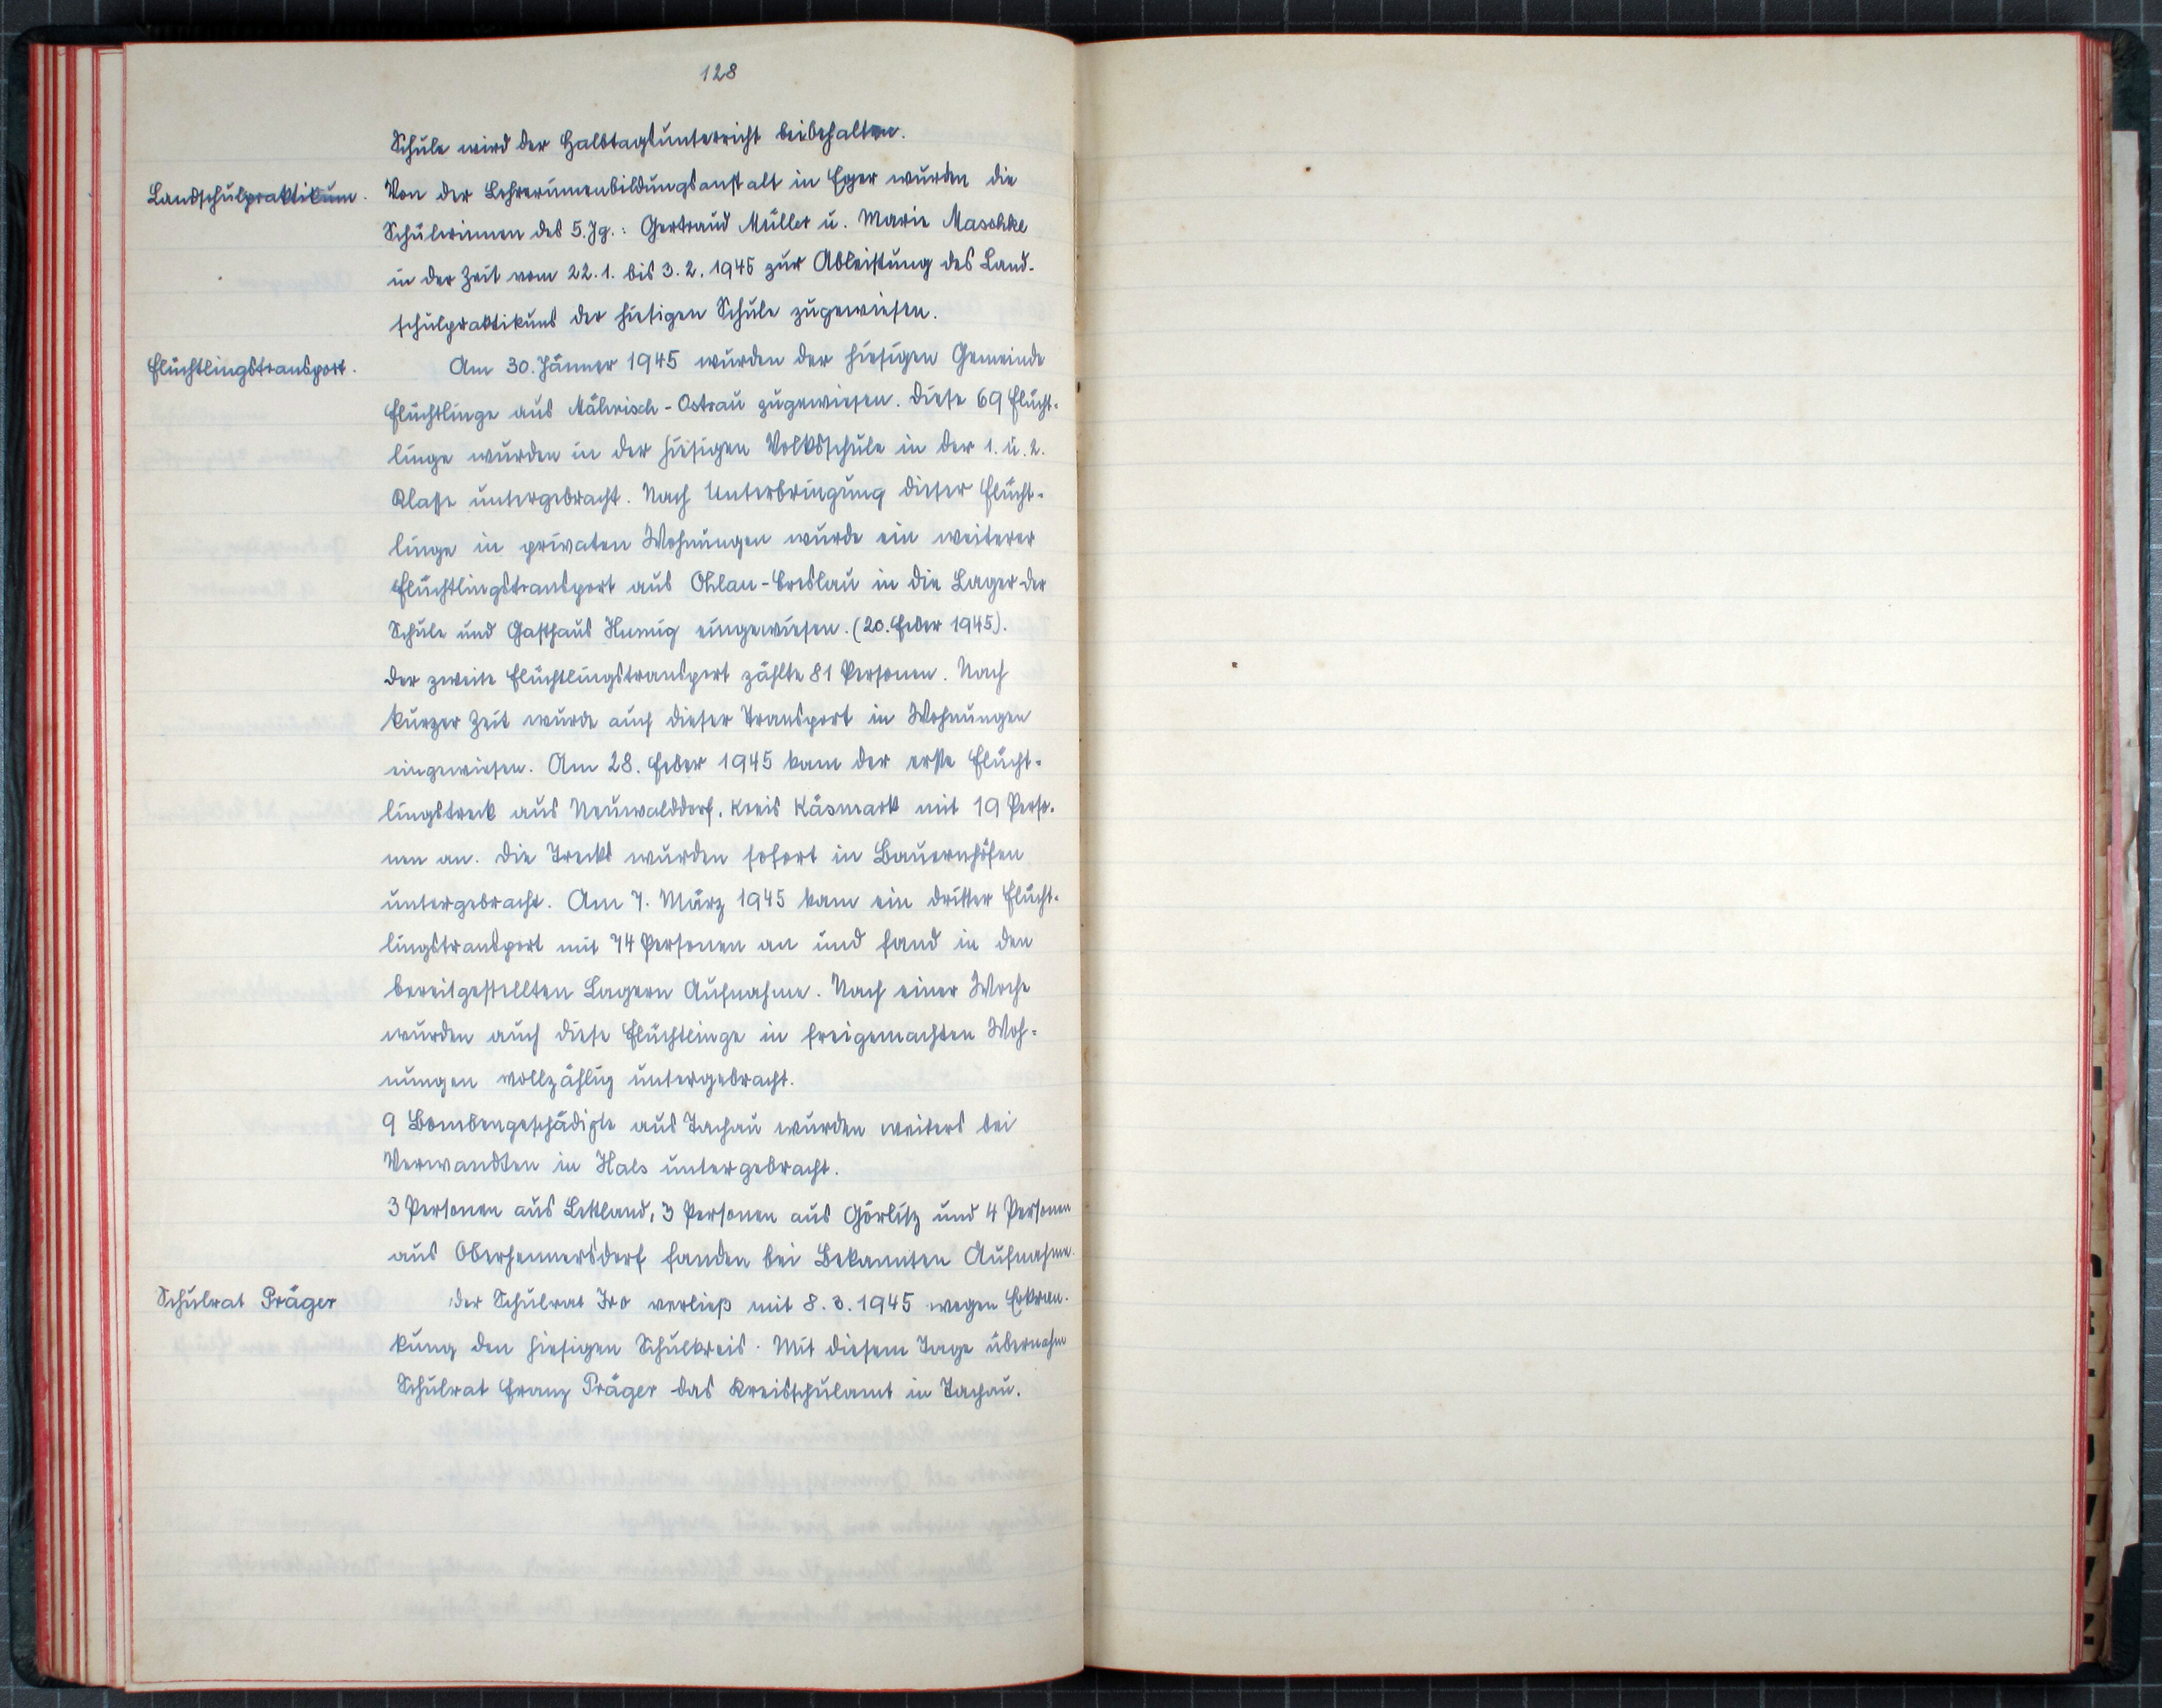 128
Schule wird der Halbtagsunterricht beibehalten.
Landschulpraktikum.
Von der Lehrerinnenbildungsanstalt in Eger wurden die
Schülerinnen des 5. Jg.: Gertraud Müller u. Marie Maschke
in der Zeit vom 22.1. bis 3.2.1945 zur Ableistung des Land-
schulpraktikums der hiesigen Schule zugewiesen.
Flüchtlingstransport.
Am 30. Jänner 1945 wurden der hiesigen Gemeinde
Flüchtlinge aus Mährisch-Ostrau zugewiesen. Diese 69 Flücht-
linge wurden in der hiesigen Volksschule in der 1. u. 2.
Klasse untergebracht. Nach Unterbringung dieser Flücht-
linge in privaten Wohnungen wurde ein weiterer
Flüchtlingstransport aus Ohlau-Breslau in die Lager der
Schule und Gasthaus eingewiesen. (20. Feber 1945).
Der zweite Flüchtlingstransport zählte 81 Personen. Nach
kurzer Zeit wurde auch dieser Transport in Wohnungen
eingewiesen. Am 28. Feber 1945 kam der erste Flücht-
lingstreck aus Neuwalddorf, Kreis Käsmark mit 19 Perso-
nen an. Die Trecks wurden sofort in Bauernhöfen
untergebracht. Am 7. März 1945 kam ein dritter Flücht-
lingstransport mit 74 Personen an und fand in den
bereitgestellten Lagern Aufnahme. Nach einer Woche
wurden auch diese Flüchtlinge in freigemachten Woh-
nungen vollzählig untergebracht.
9 Bombengeschädigte aus Tachau wurden weiters bei
Verwandten in Hals untergebracht.
3 Personen aus Lettland, 3 Personen aus Görlitz und 4 Personen
aus Oberhennersdorf fanden bei Bekannten Aufnahme.
Schulrat Präger
Der Schulrat Iro verließ mit 8.3.1945 wegen Erkran-
kung den hiesigen Schulkreis. Mit diesem Tage übernahm
Schulrat Franz Präger das Kreisschulamt in Tachau.